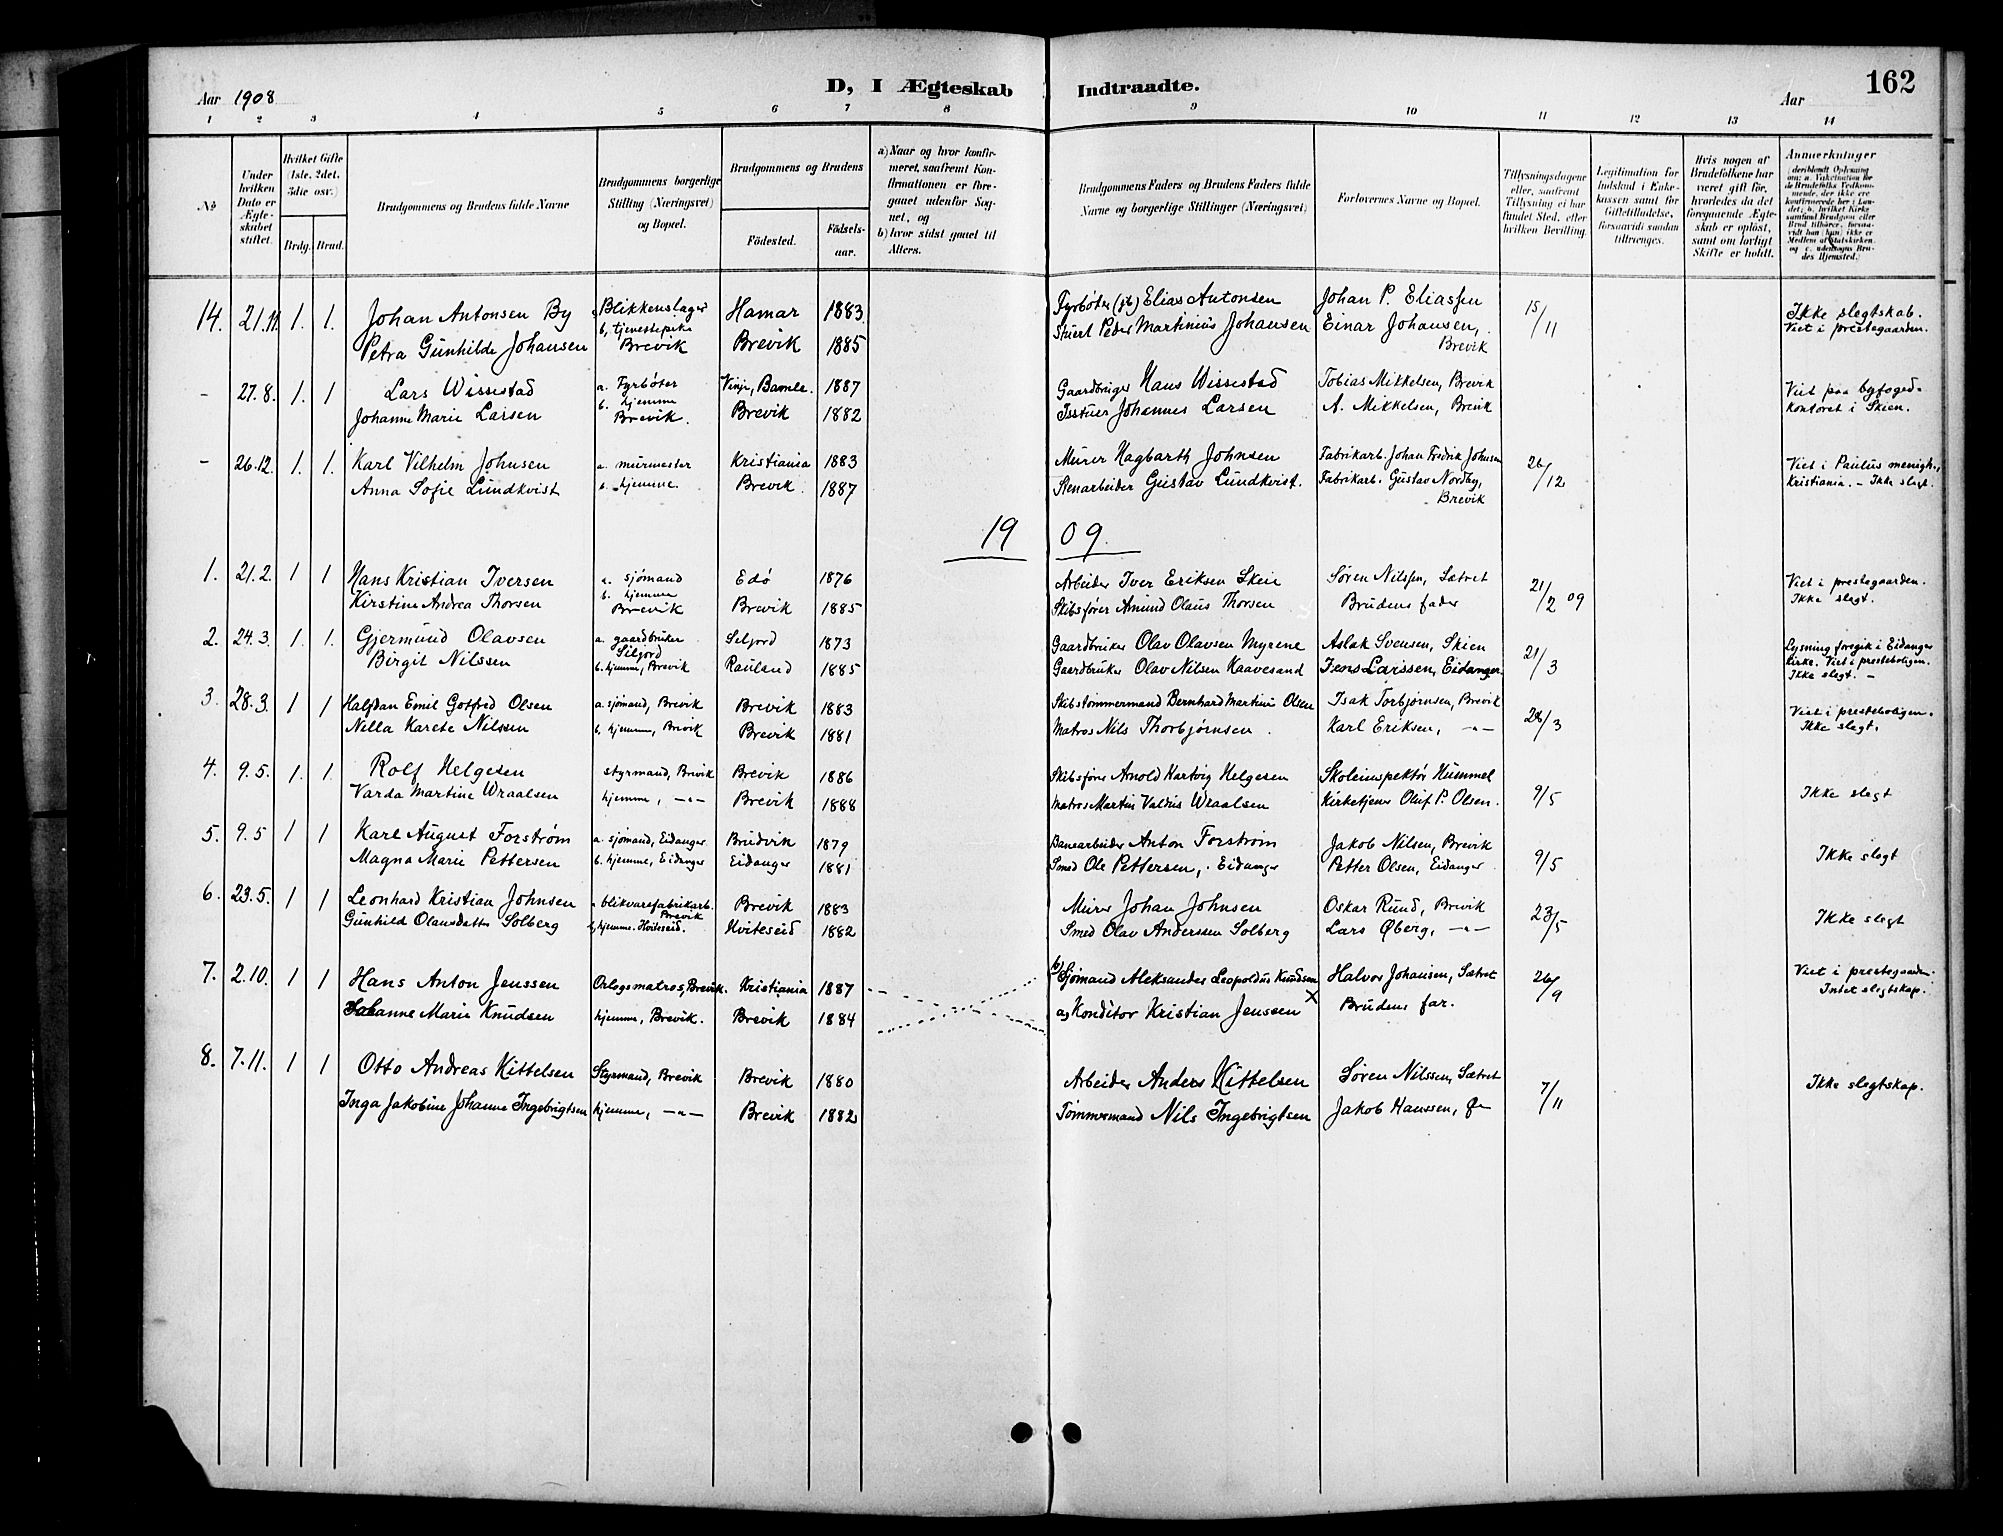 162
Aar 1908 D, I Ægteskab Indtraadte. Aar
1 2 3 4 5 6 7 8 9 10 11 12 13 14
№
Under hvilken Dato er Ægteskabet stiftet.
Hvilket Gifte (1ste, 2det, 3die osv.)
Brdg. Brud.
Brudgommens og Brudens fulde Navne
Brudgommens borgerlige Stilling (Næringsvei) og Bopæl.
Brudgommens og Brudens
Fødested. Fødselsaar.
a) Naar og hvor konfirmeret, saafremt Konfirmationen er foregaaet udenfor Sognet, og
b) hvor sidst gaaet til Alters.
Brudgommens Faders og Brudens Faders fulde Navne og borgerlige Stillinger (Næringsvei)
Forlovernes Navne og Bopæl.
Tillysningsdagene eller, saafremt Tillysning ei har fundet Sted, efter hvilken Bevilling.
Legitimation for Indskud i Enkekassen samt for Giftetilladelse, forsaavidt saadan tiltrænges.
Hvis nogen af Brudefolkene har været gift før, hvorledes da det foregaaende Ægteskab er opløst, samt om lovligt Skifte er holdt.
Anmerkninger
14. 21.11. 1. 1. Johan Antonsen By Blikkenslager Hamar 1883. Fyrbøter Elias Antonsen Johan P. Eliassen 15/11 Ikke slegtskab.
Petra Gunhilde Johansen b, tjenestepike Brevik Brevik 1885 Stuert Peder Martinius Johansen Einar Johansen, Brevik Viet i prestegaarden.
- 27.8. 1. 1 Lars Wissestad a. Fyrbøter Vinje, Bamle. 1887 Gaardbruger Hans Wissestad Tobias Mikkelsen, Brevik Viet paa byfoged-
Johanne Marie Larsen b. hjemme Brevik. Brevik 1882 Johannes Larsen A. Mikkelsen, Brevik kontoret i Skien.
- 26.12. 1. 1. Karl Vilhelm Johnsen a. murmester Kristiania 1883 Murer Hagbarth Johnsen Fabrikarb. Johan Fredrik Johnsen 26/12 Viet i Paulus menigh.,
Anna Sofie Lundkvist hjemme. Brevik. 1887 Stenarbeider Gustav Lundkvist. Fabrikarb. Gustav Nordby, Brevik Kristiania. - Ikke slegt.
19 09.
1. 21.2. 1 1 Hans Kristian Iversen a. sjømand Edö 1876 Arbeider Iver Eriksen Skeie Søren Nilssen, Sætret 21/2 09 Viet i prestegaarden.
Kirstine Andrea Thorsen b. hjemme Brevik Brevik 1885 Skibsfører Amund Olaus Thorsen Brudens fader Ikke slegt.
2. 24.3. 1. 1. Gjermund Olavsen a. gaardbruker Seljord Seljord 1873 Gaardbruker Olav Olavsen Myrene Aslak Svensen, Skien 21/3 Lysning foregik i Eidanger
Birgit Nilssen b. hjemme, Brevik Rauland 1885 Gaardbruker Olav Nilsen Kaavesand Jens Larssen, Eidanger. kirke. Viet i presteboligen.
Ikke slegt. -
3. 28.3. 1 1 Halfdan Emil Gotfred Olsen a. sjømand, Brevik Brevik 1883 Skibstømmermand Bernhard Martini Olsen Isak Torbjørnsen, Brevik 28/3 Viet i presteboligen.
Nella Karete Nilssen b. hjemme, Brevik Brevik 1881 Matros Nils Thorbjørnsen. Karl Eriksen, -"- Ikke slegt.
4. 9.5. 1. 1. Rolf Helgesen styrmand, Brevik Brevik 1886 Skibsfører Arnold Hartvig Helgesen Skoleinspektør Hummel 9/5 Ikke slegt
Varda Martine Wraalsen hjemme, -"- Brevik 1888 Matros Martin Valdus Wraalsen Kirketjener Oluf P. Olsen.
5. 9.5 1 1 Karl August Forstrøm a. sjømand, Eidanger Brudvik 1879 Banearbeider Anton Forstrøm Jakob Nilsen, Brevik 9/5 Ikke slegt
Magna Marie Pettersen b. hjemme, Eidanger Eidanger 1881 Smed Ole Pettersen, Eidanger Petter Olsen, Eidanger
6. 23.5. 1 1 Leonhard Kristian Johnsen blikvarefabrikarb. Brevik Brevik 1883 Murer Johan Johnsen Oskar Rund, Brevik 23/5 Ikke slegt
Gunhild Olausdatter Solberg hjemme. Hviteseid. Hviteseid 1882 Smed Olav Anderssen Solberg Lars Øberg, -"-
7. 2.10. 1 1 Hans Anton Jenssen Orlogsmatros, Brevik. Kristiania 1887 b) Sjømand Aleksander Leopoldus Knudsen Halvor Johansen, Sætret 26/9 Viet i prestegaarden.
Johanne Marie Knudsen hjemme, Brevik. Brevik 1884 a) Konditor Kristian Jenssen X Brudens far. Intet slegtskap.
8. 7.11. 1 1 Otto Andreas Kittelsen Styrmand, Brevik Brevik 1880 Arbeider Anders Kittelsen Søren Nilssen, Sætret 7/11 Ikke slegtskap.
Inga Jakobine Johanne Ingebrigtsen hjemme, -"- Brevik 1882 Tømmermand Nils Ingebrigtsen Jakob Hanssen,